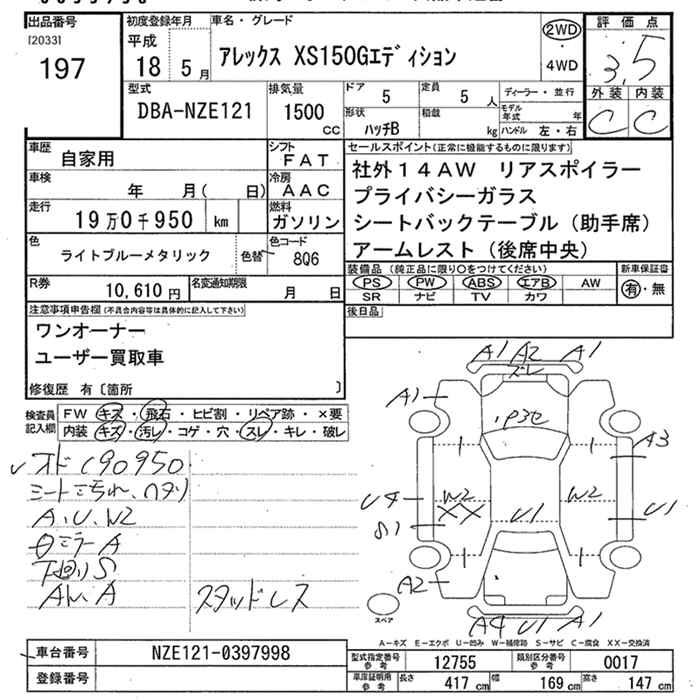 出品番号
[2033]
197
初度登録年月
平成
18 5月
車名・グレード
アレックス XS150Gエディション
2WD
・
4WD
評価点
3.5
外装 内装
C C
型式
DBA-NZE121
排気量
1500
CC
ドア
5
定員
5 人
形状
ハッチB
積載
kg
ディーラー・並行
モデル年式 年
ハンドル 左・右
車歴
自家用
シフト
FAT
車検
年 月( 日)
冷房
AAC
走行
19万0千950 km
燃料
ガソリン
色
ライトブルーメタリック
色替
色コード
8Q6
R券
10,610円
名変通知期限
月 日
セールスポイント(正常に機能するものに限ります)
社外14AW リアスポイラー
プライバシーガラス
シートバックテーブル(助手席)
アームレスト(後席中央)
装備品(純正品に限り○をつけてください)
新車保証書
PS PW ABS エアB AW
SR ナビ TV カワ
有・無
後日品
注意事項申告欄(不具合内容等は具体的に記入して下さい)
ワンオーナー
ユーザー買取車
修復歴 有〔箇所 〕
検査員記入欄
FW キズ・飛石・ヒビ割・リペア跡・×要
内装 キズ・汚レ・コゲ・穴・スレ・キレ・破レ
オド190950
シートよごれ、ヘタリ
A.U.W2
ミラーA
下回りS
AW.A
スタッドレス
A1 A2 A1
ズレ
A1
P3C
A3
U4 W2 W2
XX U1 U1
S1
A2
A4 U1 A1
スペア
A-キズ E-エクボ U-凹み W-補修跡 S-サビ C-腐食 XX-交換済
車台番号
NZE121-0397998
登録番号
型式指定番号
参考
12755
類別区分番号
参考
0017
車庫証明用
参考
長さ 417 cm
幅 169 cm
高さ 147 cm